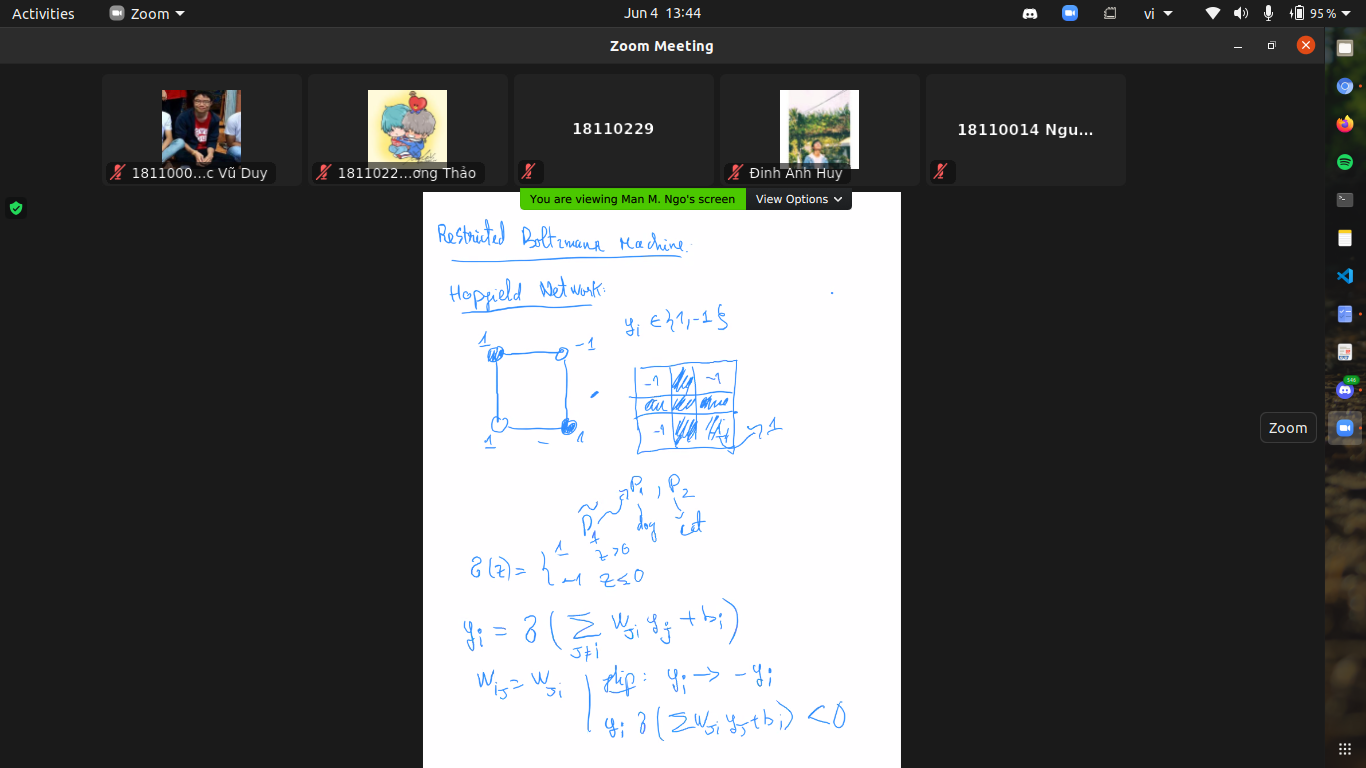 Activities Zoom Jun 4 13:44 vi 95 %
Zoom Meeting
1811000...c Vũ Duy
1811022...ơng Thảo
18110229
Đinh Anh Huy
18110014 Ngu...
You are viewing Man M. Ngo's screen View Options
Restricted Boltzmann Machine.
Hopfield Network:
y_i ∈ {1, -1}
1 -1
1 - 1
-1 -1
-1 1
P_1, P_2
P̃_1 dog cat
σ(z) = { 1 z > 0
-1 z ≤ 0
y_i = σ(∑_{j≠i} w_{ji} y_j + b_i)
w_{ij} = w_{ji} | flip: y_i → -y_i
y_i σ(∑ w_{ji} y_j + b_i) < 0
Zoom
548